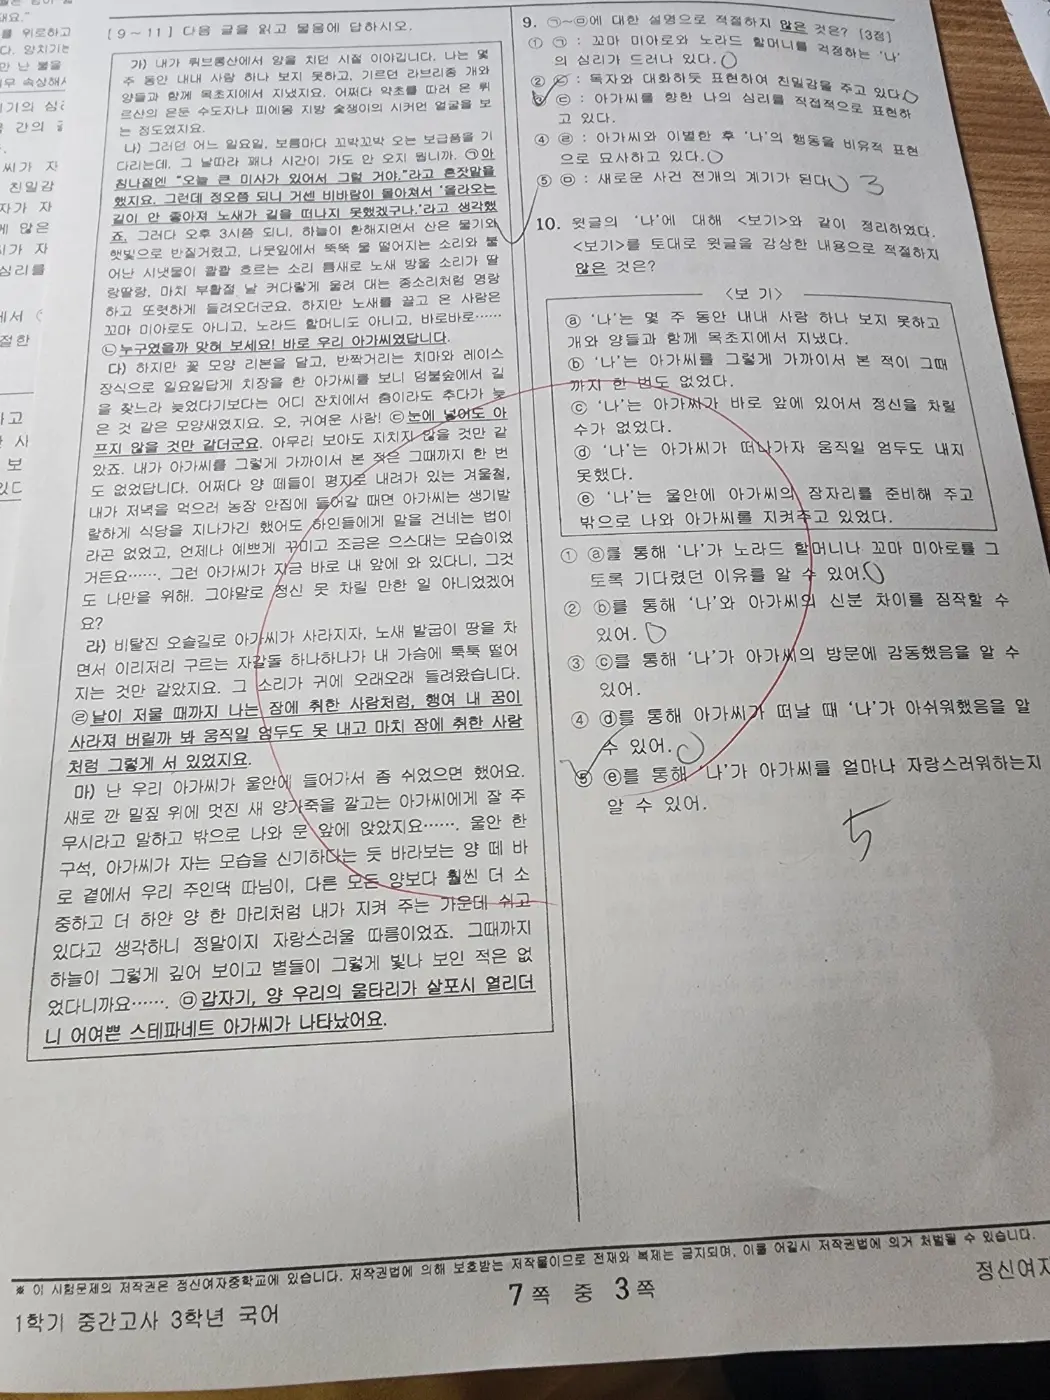 [9~11] 다음 글을 읽고 물음에 답하시오.
가) 내가 뤼브롱산에서 양을 치던 시절 이야깁니다. 나는 몇
주 동안 내내 사람 하나 보지 못하고, 기르던 라브리종 개와
양들과 함께 목초지에서 지냈지요. 어쩌다 약초를 따러 온 뤼
르산의 은둔 수도자나 피에몽 지방 숯쟁이의 시커먼 얼굴을 보
는 정도였지요.
나) 그러던 어느 일요일, 보름마다 꼬박꼬박 오는 보급품을 기
다리는데, 그 날따라 꽤나 시간이 가도 안 오지 뭡니까. ㉠아
침나절엔 “오늘 큰 미사가 있어서 그럴 거야.”라고 혼잣말을
했지요. 그런데 정오쯤 되니 거센 비바람이 몰아쳐서 ‘올라오는
길이 안 좋아져 노새가 길을 떠나지 못했겠구나.’라고 생각했
죠. 그러다 오후 3시쯤 되니, 하늘이 환해지면서 산은 물기와
햇빛으로 반질거렸고, 나뭇잎에서 뚝뚝 물 떨어지는 소리와 불
어난 시냇물이 콸콸 흐르는 소리 틈새로 노새 방울 소리가 딸
랑딸랑, 마치 부활절 날 커다랗게 울려 대는 종소리처럼 명랑
하고 또렷하게 들려오더군요. 하지만 노새를 끌고 온 사람은
꼬마 미아로도 아니고, 노라드 할머니도 아니고, 바로바로……
㉡누구였을까 맞혀 보세요! 바로 우리 아가씨였답니다.
다) 하지만 꽃 모양 리본을 달고, 반짝거리는 치마와 레이스
장식으로 일요일답게 치장을 한 아가씨를 보니 덤불숲에서 길
을 찾느라 늦었다기보다는 어디 잔치에서 춤이라도 추다가 늦
은 것 같은 모양새였지요. 오, 귀여운 사람! ㉢눈에 넣어도 아
프지 않을 것만 같더군요. 아무리 보아도 지치지 않을 것만 같
았죠. 내가 아가씨를 그렇게 가까이서 본 적은 그때까지 한 번
도 없었답니다. 어쩌다 양 떼들이 평지로 내려가 있는 겨울철,
내가 저녁을 먹으러 농장 안집에 들어갈 때면 아가씨는 생기발
랄하게 식당을 지나가긴 했어도 하인들에게 말을 건네는 법이
라곤 없었고, 언제나 예쁘게 꾸미고 조금은 으스대는 모습이었
거든요……. 그런 아가씨가 지금 바로 내 앞에 와 있다니, 그것
도 나만을 위해. 그야말로 정신 못 차릴 만한 일 아니었겠어
요?
라) 비탈진 오솔길로 아가씨가 사라지자, 노새 발굽이 땅을 차
면서 이리저리 구르는 자갈돌 하나하나가 내 가슴에 툭툭 떨어
지는 것만 같았지요. 그 소리가 귀에 오래오래 들려왔습니다.
㉣날이 저물 때까지 나는 잠에 취한 사람처럼, 행여 내 꿈이
사라져 버릴까 봐 움직일 엄두도 못 내고 마치 잠에 취한 사람
처럼 그렇게 서 있었지요.
마) 난 우리 아가씨가 울안에 들어가서 좀 쉬었으면 했어요.
새로 깐 밀짚 위에 멋진 새 양가죽을 깔고는 아가씨에게 잘 주
무시라고 말하고 밖으로 나와 문 앞에 앉았지요……. 울안 한
구석, 아가씨가 자는 모습을 신기하다는 듯 바라보는 양 떼 바
로 곁에서 우리 주인댁 따님이, 다른 모든 양보다 훨씬 더 소
중하고 더 하얀 양 한 마리처럼 내가 지켜 주는 가운데 쉬고
있다고 생각하니 정말이지 자랑스러울 따름이었죠. 그때까지
하늘이 그렇게 깊어 보이고 별들이 그렇게 빛나 보인 적은 없
었다니까요……. ㉤갑자기, 양 우리의 울타리가 살포시 열리더
니 어여쁜 스테파네트 아가씨가 나타났어요.
9. ㉠~㉤에 대한 설명으로 적절하지 않은 것은? [3점]
① ㉠ : 꼬마 미아로와 노라드 할머니를 걱정하는 ‘나’
의 심리가 드러나 있다.
② ㉡ : 독자와 대화하듯 표현하여 친밀감을 주고 있다.
③ ㉢ : 아가씨를 향한 나의 심리를 직접적으로 표현하
고 있다.
④ ㉣ : 아가씨와 이별한 후 ‘나’의 행동을 비유적 표현
으로 묘사하고 있다.
⑤ ㉤ : 새로운 사건 전개의 계기가 된다. 3
10. 윗글의 ‘나’에 대해 <보기>와 같이 정리하였다.
<보기>를 토대로 윗글을 감상한 내용으로 적절하지
않은 것은?
<보 기>
ⓐ ‘나’는 몇 주 동안 내내 사람 하나 보지 못하고
개와 양들과 함께 목초지에서 지냈다.
ⓑ ‘나’는 아가씨를 그렇게 가까이서 본 적이 그때
까지 한 번도 없었다.
ⓒ ‘나’는 아가씨가 바로 앞에 있어서 정신을 차릴
수가 없었다.
ⓓ ‘나’는 아가씨가 떠나가자 움직일 엄두도 내지
못했다.
ⓔ ‘나’는 울안에 아가씨의 잠자리를 준비해 주고
밖으로 나와 아가씨를 지켜주고 있었다.
① ⓐ를 통해 ‘나’가 노라드 할머니나 꼬마 미아로를 그
토록 기다렸던 이유를 알 수 있어.
② ⓑ를 통해 ‘나’와 아가씨의 신분 차이를 짐작할 수
있어.
③ ⓒ를 통해 ‘나’가 아가씨의 방문에 감동했음을 알 수
있어.
④ ⓓ를 통해 아가씨가 떠날 때 ‘나’가 아쉬워했음을 알
수 있어.
⑤ ⓔ를 통해 ‘나’가 아가씨를 얼마나 자랑스러워하는지
알 수 있어.
5
※ 이 시험문제의 저작권은 정신여자중학교에 있습니다. 저작권법에 의해 보호받는 저작물이므로 전재와 복제는 금지되며, 이를 어길시 저작권법에 의거 처벌될 수 있습니다.
1학기 중간고사 3학년 국어
7쪽 중 3쪽
정신여자